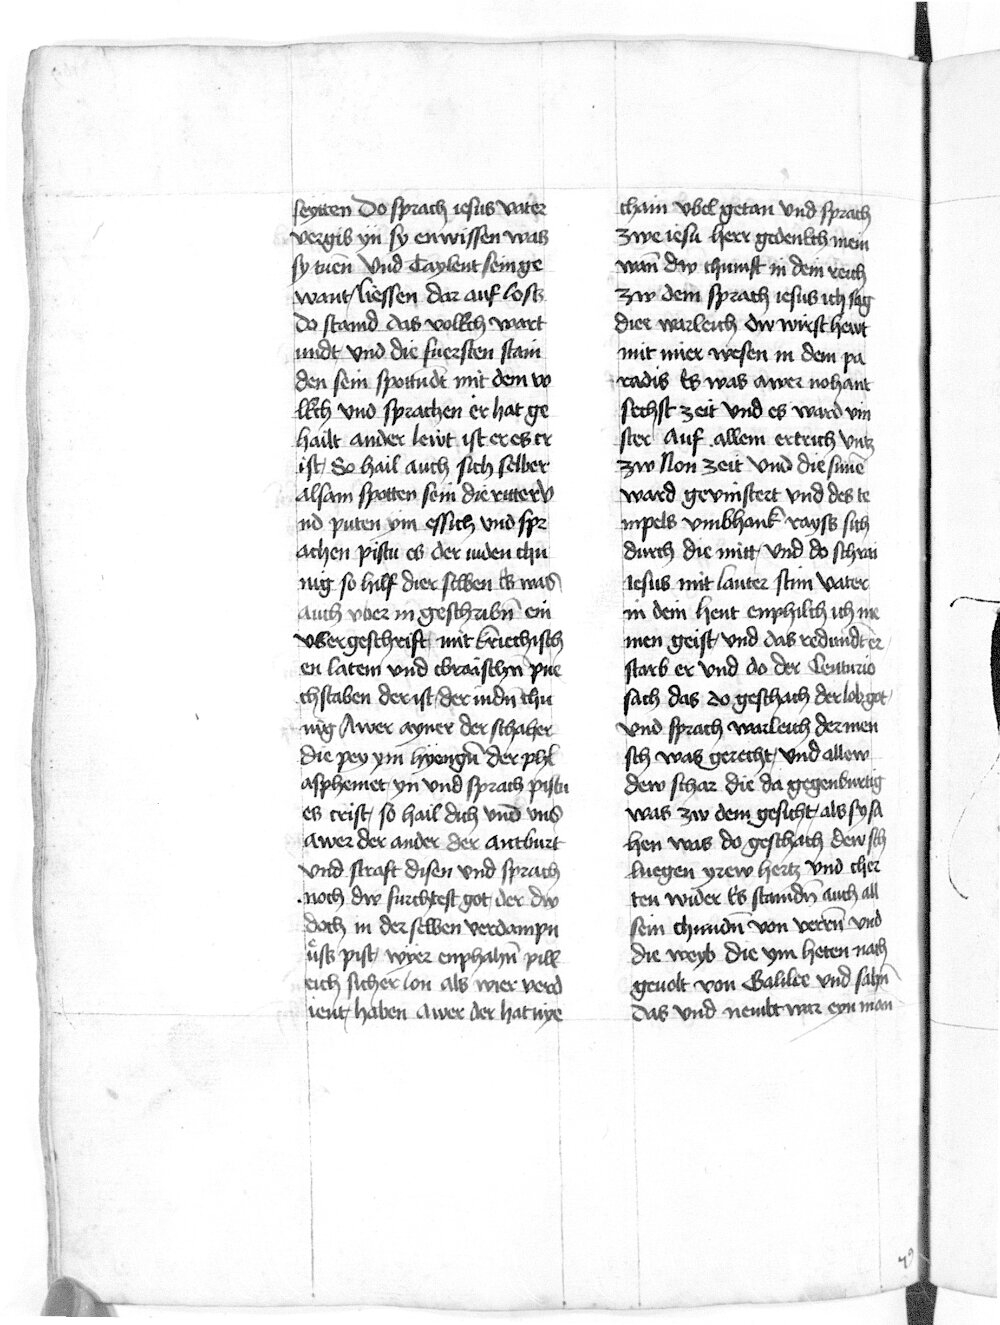 seytten Do sprach iesus vater
vergib yn sy enwissen was
sy tuen Vnd Taylent sein ge
want / liessen dar auf loss
do stand das volkch wart
undt vnd die fuersten stain
den sein spottudt mit dem vo
lkch vnd sprachen er hat ge
hailt ander lewt ist er es cr
ist / So hail auch sich selber
alsam spotten sein die ritter v
nd puten ym essich vnd spr
achen pistu es der iuden chu
nig so hilf dier selben Es was
auch vber in geschribn ein
vbergeschrift mit kriechisch
en latein vnd ebraischn pue
chstaben der ist / der iudn chu
nig Awer ayner der schacher
die pey ym hyengn der phl
asphemet yn vnd sprach pistu
es crist / so hail dich vnd vns
awer der ander der antburt
vnd straft disen vnd sprach
noch dw furchtest got der dw
doch in der selben verdampn
üss pist / wyer enphahn pill
eich sicher lon als wier verd
ient / haben awer der hat nye
chain vbel getan vnd sprach
zwe iesu herr gedenkch mein
wan dw chumst in dein reich
zw dem sprach iesus ich sag
dier warleich dw wirst hewt
mit mier wesen in dem pa
radis Es was awer nohant
sechst zeit vnd es ward vin
ster auf allem ertrich vntz
zw Non zeit vnd die sunne
ward gevinstert vnd des te
mpels vmbhank rayss sich
durch die mitt / vnd do schrai
iesus mit lauter stim vater
in dein hent enphilch ich me
inen geist / vnd das redundt er
starb er vnd do der Centurio
sach das do geschach der lob got /
vnd sprach warleich der men
sch was gerecht / vnd allew
dew schar die da gegenburtig
was zw dem gesicht / als sy sa
hen was do geschach dew sch
luegen yrew hertz vnd cher
ten wider Es standn auch all
sein chundn von verrn vnd
die weyb die ym heten nach
geuolt von Galilee vnd sahn
das vnd nembt war eyn man
79